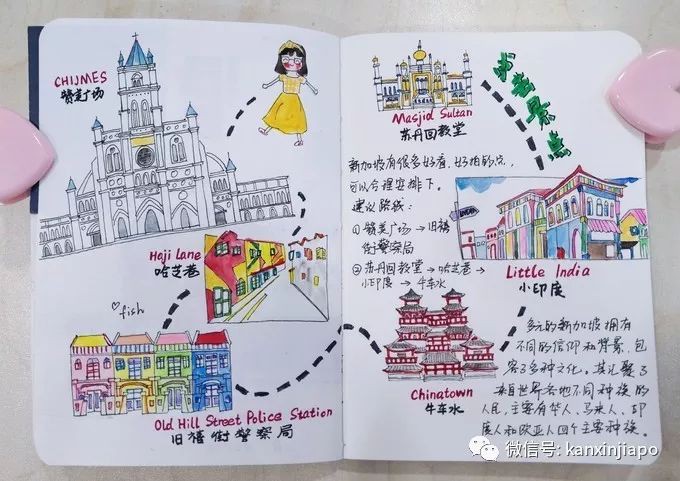 CHIJMES
赞美广场
Haji Lane
哈芝巷
fish
Old Hill Street Police Station
旧禧街警察局
Masjid Sultan
苏丹回教堂
景点
新加坡有很多好看,好拍的点,
可以合理安排下。
建议路线:
①赞美广场→旧禧
街警察局
②苏丹回教堂→哈芝巷→
小印度 → 牛车水
INDIA
Little India
小印度
Chinatown
牛车水
多元的新加坡拥有
不同的信仰和背景,包
容了多种文化。其汇聚了
来自世界各地不同种族的
人民,主要有华人、马来人、印
度人和欧亚人四个主要种族。
微信号: kanxinjiapo